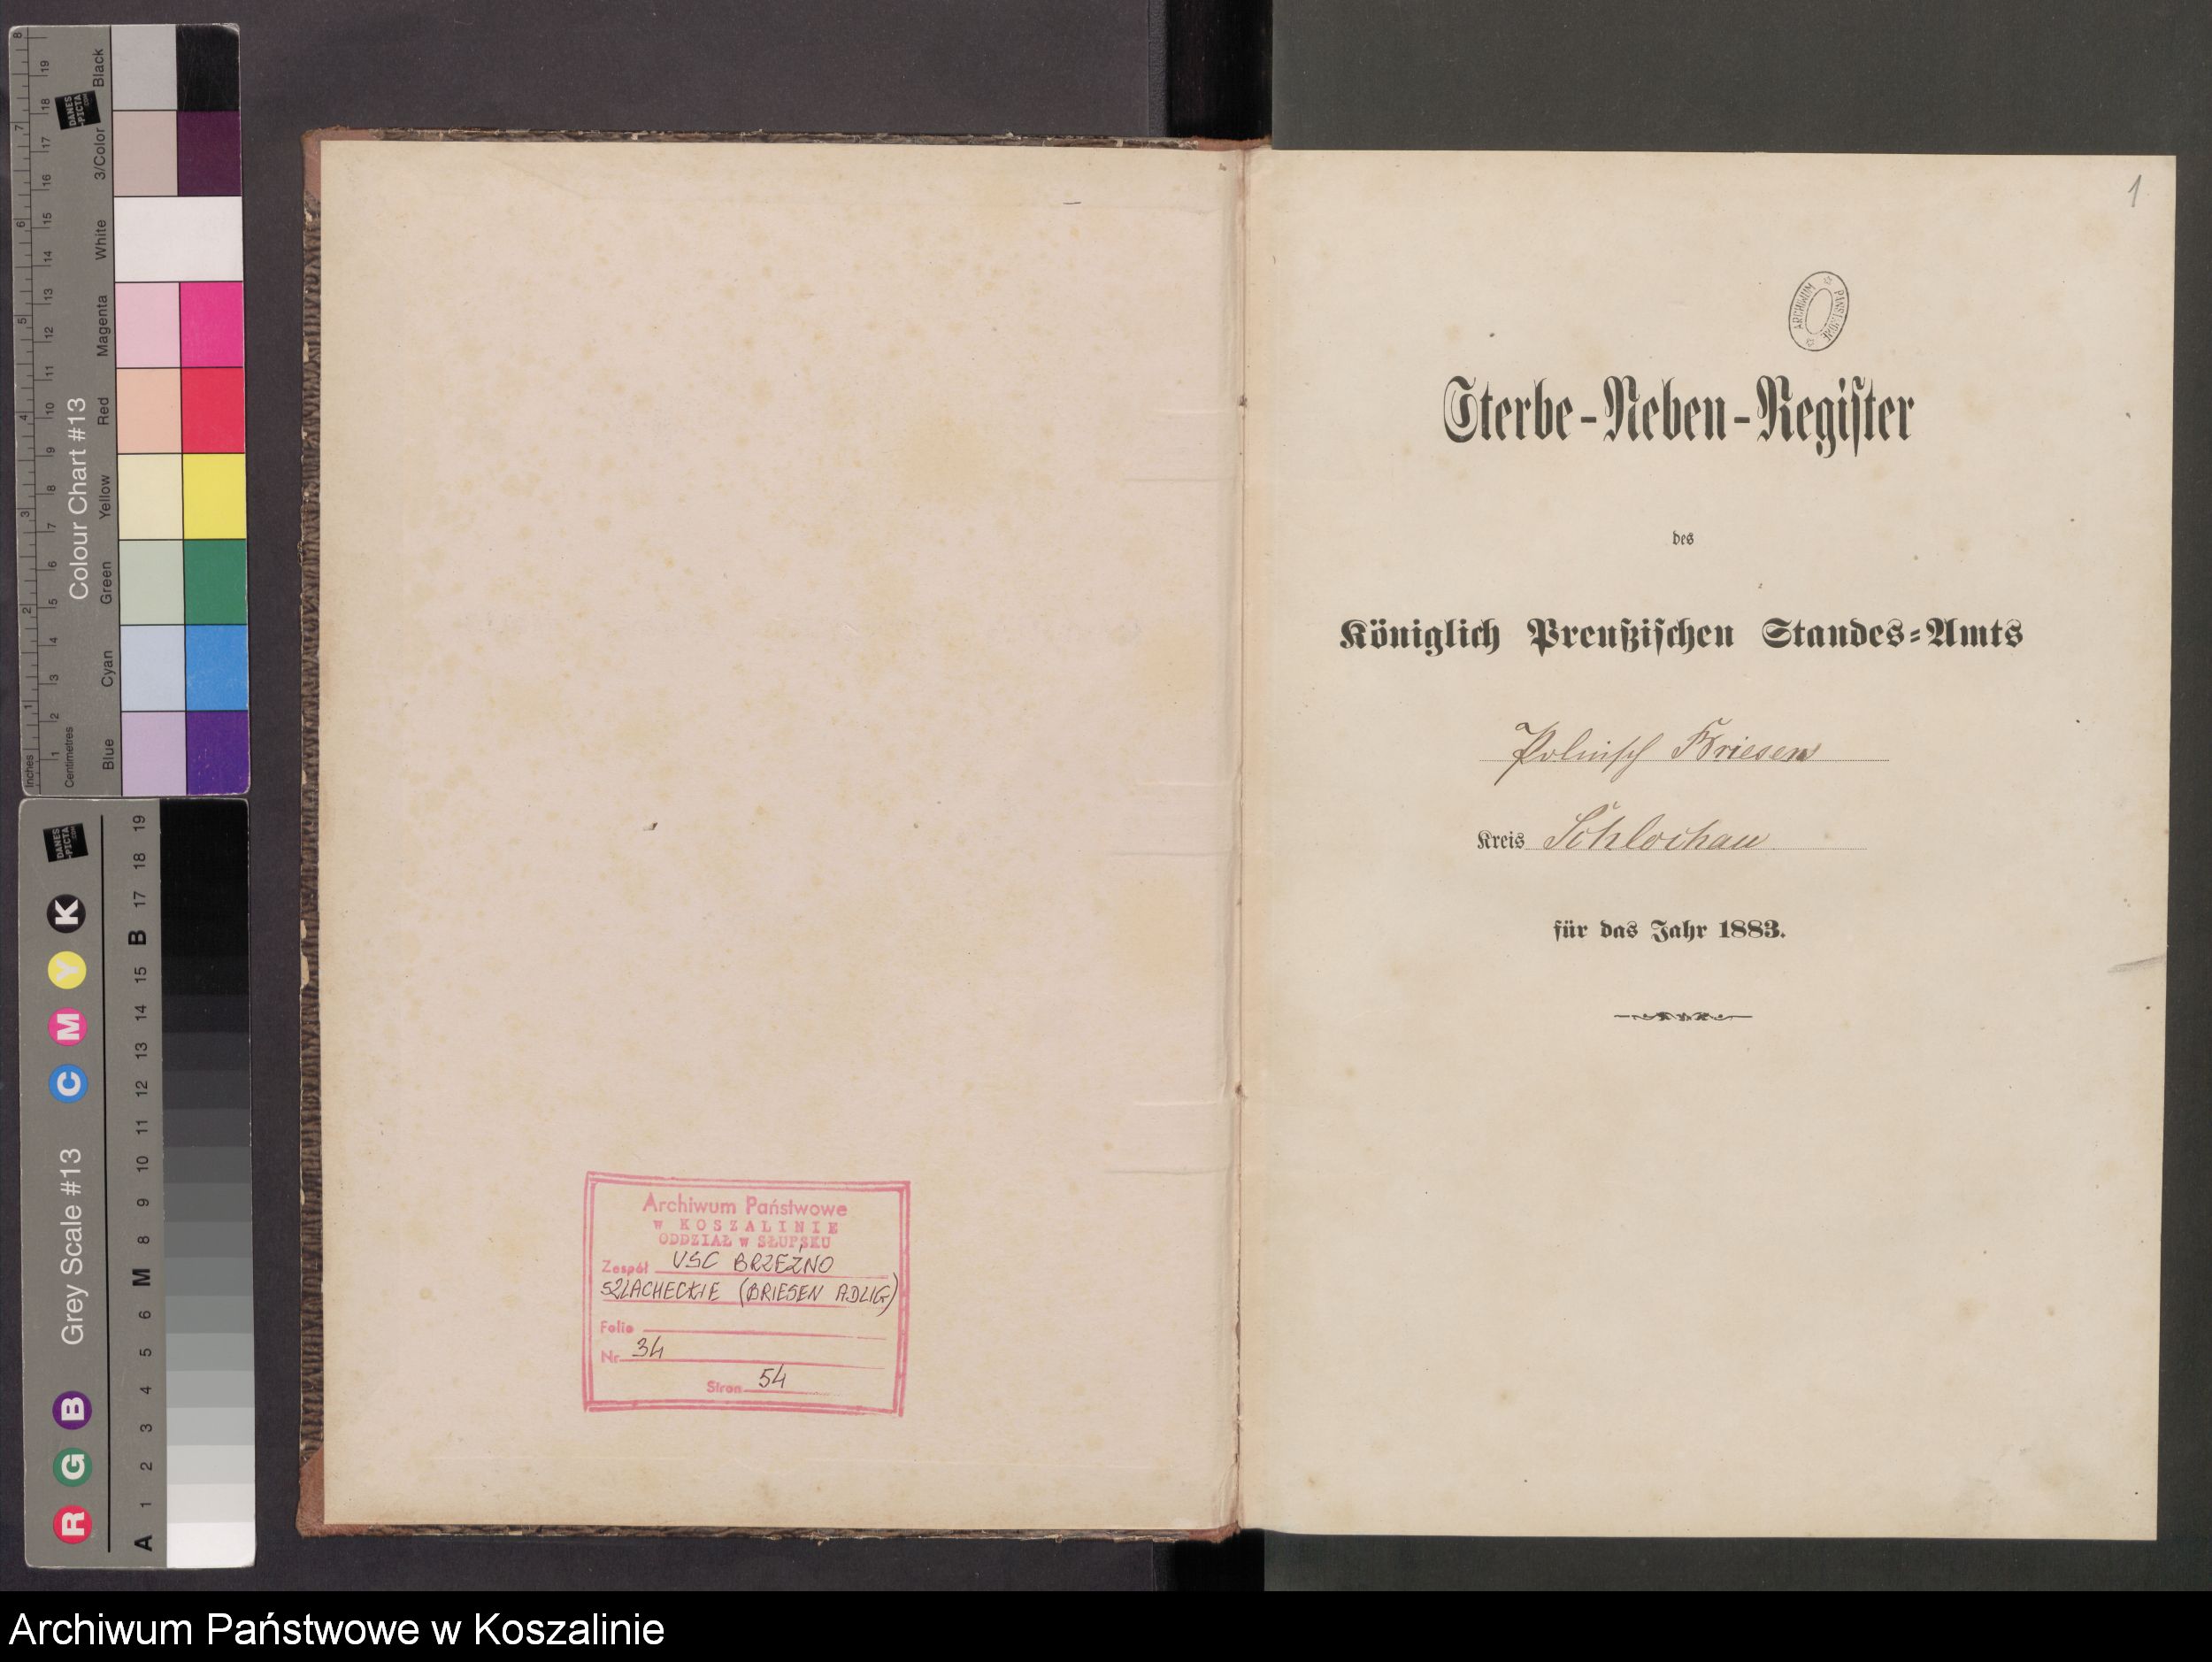 Archiwum Państwowe
w KOSZALINIE
ODDZIAŁ w SŁUPSKU
Zespół USC BRZEŹNO
SZLACHECKIE (BRIESEN ADLIG)
Folio
Nr 34
Stron 54
1
ARCHIWUM PAŃSTWOWE
Sterbe-Neben-Register
des
Königlich Preußischen Standes-Amts
Polnisch Briesen
Kreis Schlochau
für das Jahr 1883.
Inches 1 2 3 4 5 6 7 8
Centimetres 1 2 3 4 5 6 7 8 9 10 11 12 13 14 15 16 17 18 19
Colour Chart #13
Blue Cyan Green Yellow Red Magenta White 3/Color Black
DANES
-PICTA
.COM
Grey Scale #13
R G B C M Y K
A 1 2 3 4 5 6 M 8 9 10 11 12 13 14 15 B 17 18 19
DANES
-PICTA
.COM
Archiwum Państwowe w Koszalinie